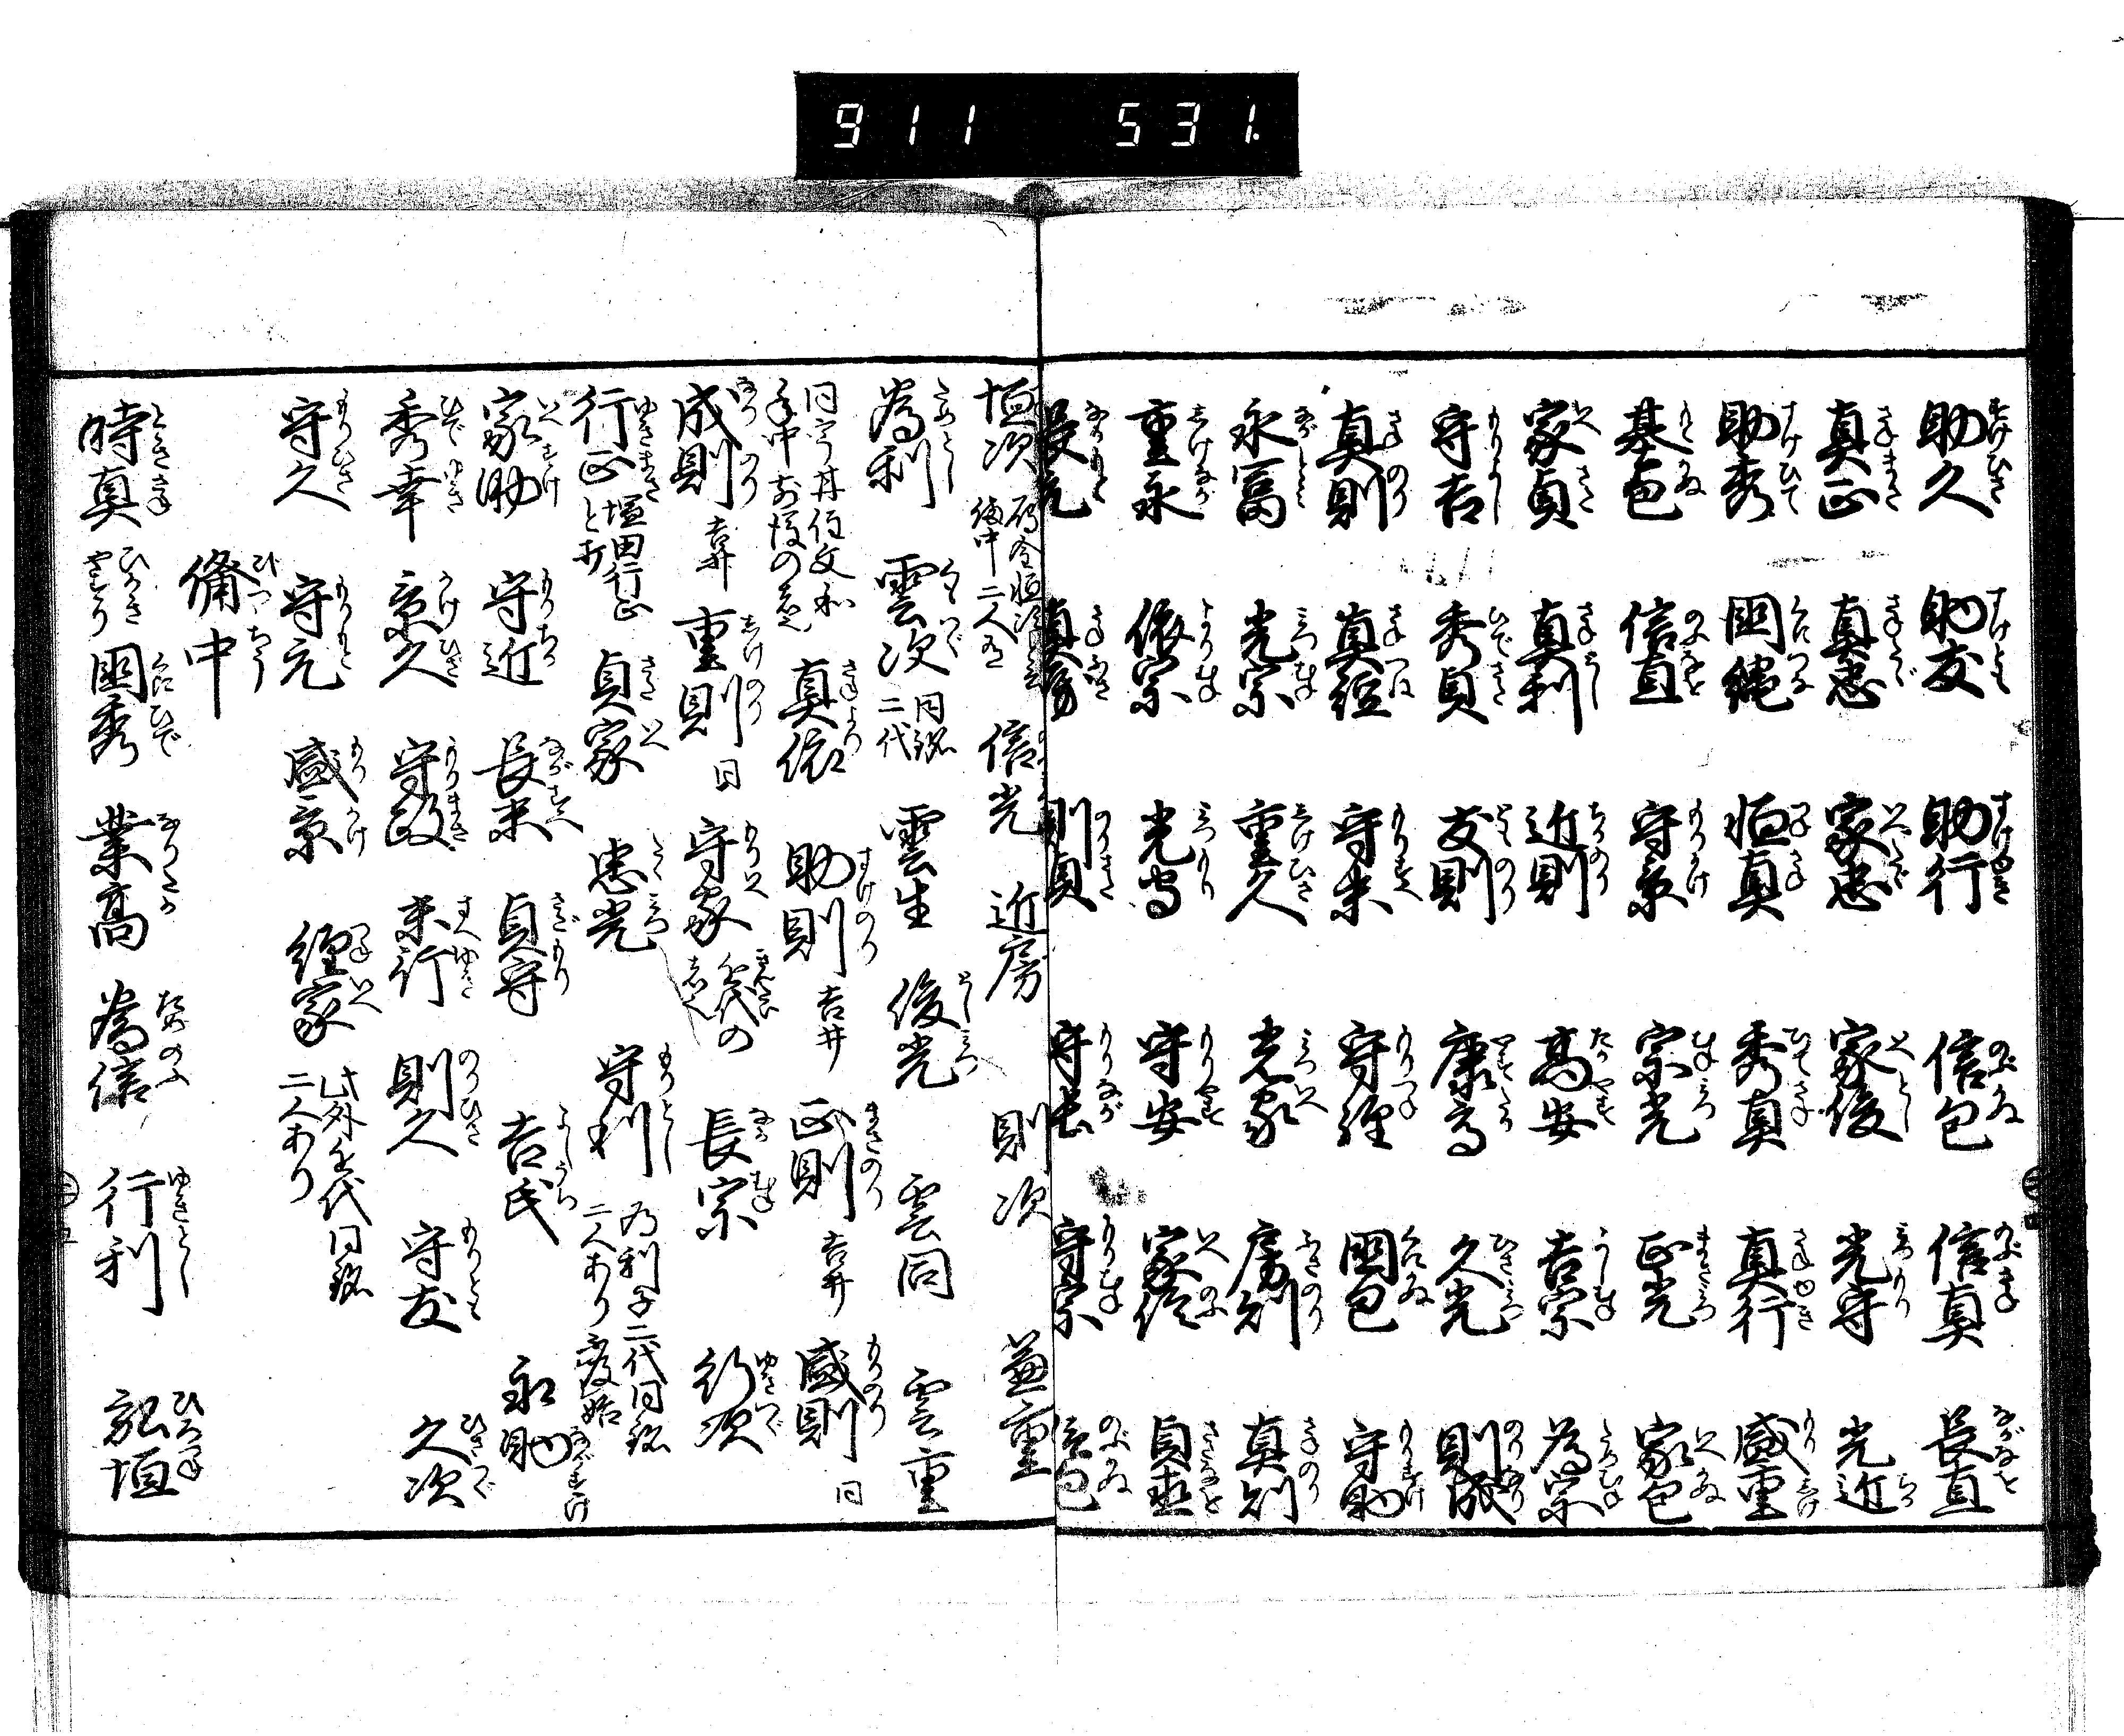 911 531.
助久 助友 助行 信包 信真 長直
真正 真忠 家忠 家俊 光守 光近
助秀 国縄 恒真 秀真 真行 盛重
基包 信直 守景 宗光 正光 家包
家貞 真利 近則 高安 吉宗 為宗
守吉 秀貞 友則 康高 久光 則成
真則 真経 守末 守経 国包 守助
永富 光宗 重久 光家 房則 真則
重永 依宗 光守 守安 家信 貞直
長元 真房 則貞 守長 守宗 信包
恒次 備中二人 信光 近房 則次 兼重
為利 雲次 同銘二代 雲生 俊光 雲同 雲重
真依 助則 吉井 正則 吉井 盛則 同
成則 吉井 重則 同 守家 長宗 行次
行正 塩田行正と打 貞家 忠光 守利 為利子二代同銘二人あり
家助 守近 長末 貞守 吉氏 永助
秀幸 景久 守政 末行 則久 守友 久次
守久 守元 盛景 経家 此外今代同銘二人あり
備中
時真 国秀 業高 為信 行利 弘恒